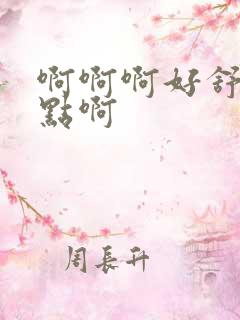 啊啊啊好舒
點啊
周長升